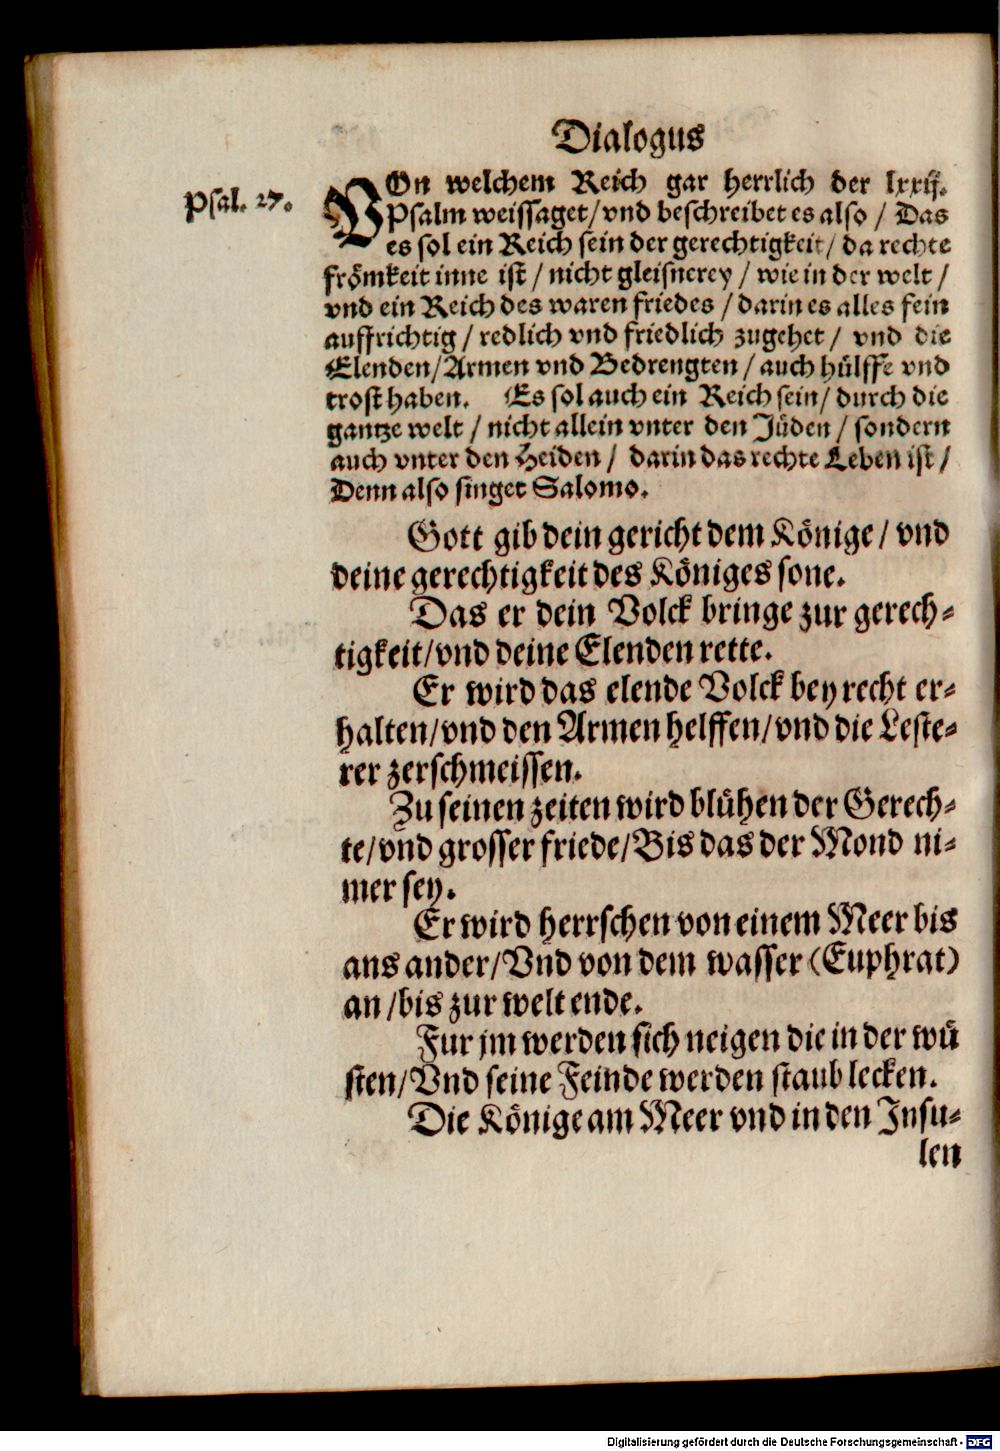 Dialogus
Psal. 27.
VOn welchem Reich gar herrlich der lxxij.
Psalm weissaget/vnd beschreibet es also / Das
es sol ein Reich sein der gerechtigkeit/ da rechte
frömkeit inne ist / nicht gleisnerey / wie in der welt /
vnd ein Reich des waren friedes / darin es alles fein
auffrichtig / redlich vnd friedlich zugehet / vnd die
Elenden/Armen vnd Bedrengten / auch hülffe vnd
trost haben. Es sol auch ein Reich sein/ durch die
gantze welt / nicht allein vnter den Jüden / sondern
auch vnter den Heiden / darin das rechte Leben ist /
Denn also singet Salomo.
Gott gib dein gericht dem Könige/ vnd
deine gerechtigkeit des Königes sone.
Das er dein Volck bringe zur gerech-
tigkeit/vnd deine Elenden rette.
Er wird das elende Volck bey recht er-
halten/vnd den Armen helffen/vnd die Leste-
rer zerschmeissen.
Zu seinen zeiten wird blühen der Gerech-
te/vnd grosser friede/Bis das der Mond ni-
mer sey.
Er wird herrschen von einem Meer bis
ans ander/Vnd von dem wasser (Euphrat)
an /bis zur welt ende.
Fur jm werden sich neigen die in der wü
sten/Vnd seine Feinde werden staub lecken.
Die Könige am Meer vnd in den Insu-
len
Digitalisierung gefördert durch die Deutsche Forschungsgemeinschaft - DFG